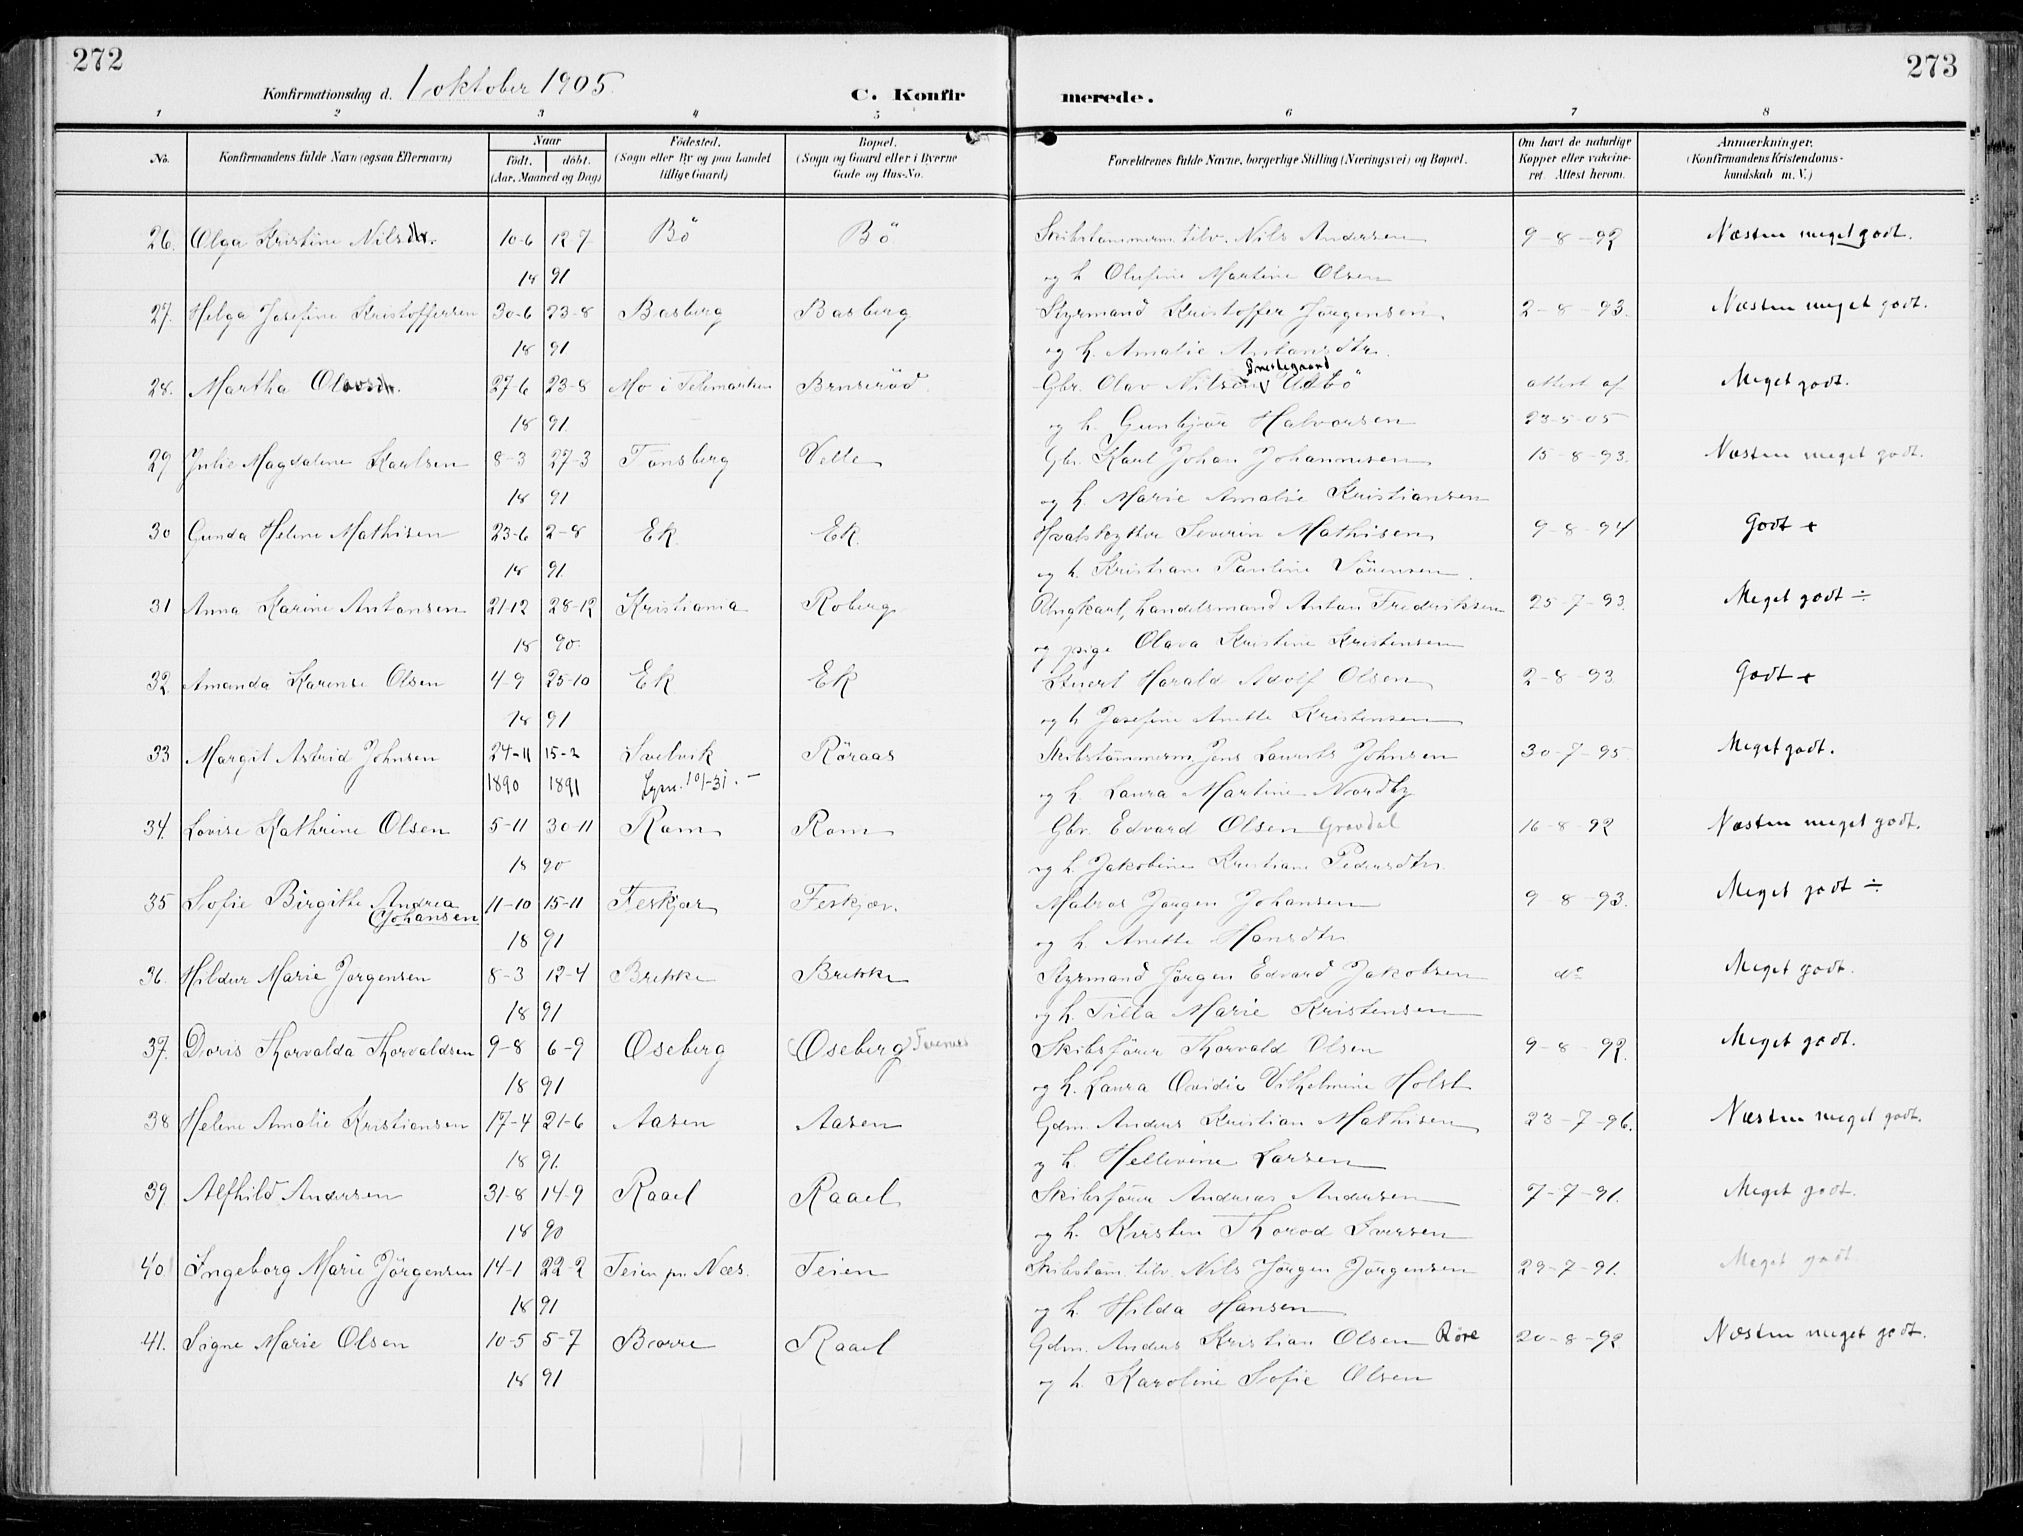 272
273
Konfirmationsdag d. 1 oktober 1905.
C. Konfir
merede.
1 2 3 4 5 6 7 8
No.
Konfirmandens fulde Navn (ogsaa Efternavn)
Naar
født. døbt.
(Aar, Maaned og Dag)
Fødested.
(Sogn eller By og paa Landet
tillige Gaard)
Bopæl.
(Sogn og Gaard eller i Byerne
Gade og Hus-No.
Forældrenes fulde Navne, borgerlige Stilling (Næringsvei) og Bopæl.
Om havt de naturlige
Kopper eller vakcine-
ret. Attest herom.
Anmærkninger.
(Konfirmandens Kristendoms-
kundskab m. V.)
26. Olga Kristine Nilsdtr. 10-6 12-7 Bö Bö Skibstømmerm. tilv. Nils Andersen 9-8-92 Næsten meget godt.
18 91 og h. Olufine Martine Olsen
27. Helga Josefine Kristoffersen 30-6 23-8 Basberg Basberg Styrmand Kristoffer Jørgensen 2-8-93. Næsten meget godt.
18 91 og h. Amalie Antonsdtr.
28. Martha Olavsdtr. 27-6 23-8 Mo i Telemarken Brunerød Gbr. Olav Nilsen Prestegaard Udbö attest af Meget godt.
18 91 og h. Gunbjør Halvorsen 23-5-05
29 Julie Magdalene Karlsen 8-3 27-3 Tønsberg Velle Gbr. Karl Johan Johannesen 15-8-93. Næsten meget godt.
18 91 og h. Marie Amalie Kristiansen
30 Gunda Helene Mathisen 23-6 2-8 Ek Ek Hvalskytter Severin Mathisen 9-8-94 Godt +
18 91. og h. Kristiane Pauline Sørensen.
31 Anna Karine Antonsen 21-12 28-12 Kristiania Roberg Ungkarl, handelsmand Anton Fredriksen 25-7-93 Meget godt ÷
18 90. og pige Olava Kristine Kristensen
32. Amanda Karense Olsen 4-9 25-10 Ek Ek Stuert Harald Adolf Olsen 2-8-93 Godt +
18 91 og h Josefine Anette Kristensen
33 Margit Astrid Johnsen 24-11 15-2 Svelvik Röraas Skibstømmerm. Jens Laurits Johnsen 30-7-95 Meget godt.
1890 1891 og h. Laura Martine Nordby
34. Lovise Kathrine Olsen 5-11 30-11 Rom Rom Gbr. Edvard Olsen Gravdal 16-8-92 Næsten meget godt.
18 90 og h. Jakobine Kristiane Pedersdtr.
35 Sofie Birgitte Andrea Johansen 11-10 15-11 Feskjær Feskjær. Matros Jørgen Johansen 9-8-93. Meget godt ÷
18 91 og h Anette Hansdtr
36. Hildur Marie Jørgensen 8-3 12-4 Brekke Brekke Styrmand Jørgen Edvard Jakobsen do Meget godt.
18 91 og h. Tilla Marie Kristensen
37. Doris Thorvalda Thorvaldsen 9-8 6-9 Oseberg Oseberg Skibsfører Thorvald Olsen 9-8-92. Meget godt.
18 91 og h. Laura Ovidie Vilhelmine Holst
38 Helene Amalie Kristiansen 17-4 21-6 Aasen Aasen Gdm. Anders Kristian Mathisen 23-7-96. Næsten meget godt.
18 91. og h. Hellevine Larsen
39. Alfhild Andersen 31-8 14-9 Raael Raael Skibsfører Andreas Andersen 7-7-91. Meget godt.
18 90 og h. Kirsten Thorod Iversen
40. Ingeborg Marie Jörgensen 14-1 22-2 Teien pr. Næs. Teien Skibstøm. tilv. Nils Jørgen Jørgensen 29-7-91. Meget godt
18 91 og h. Hilda Hansen
41. Signe Marie Olsen 10-5 5-7 Borre Raael Gdm. Anders Kristian Olsen Röre 20-8-92 Næsten meget godt.
18 91 og h. Karoline Sofie Olsen